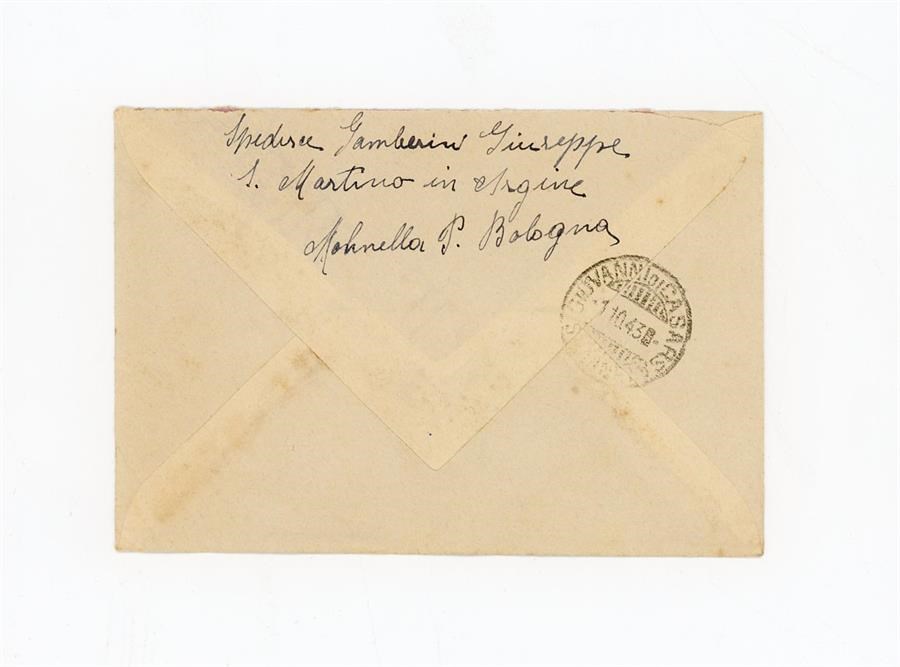 Spedisce Gamberini Giuseppe
S. Martino in Argine
Molinella P. Bologna
S. GIOVANNI DI CASARSA
1.10.43